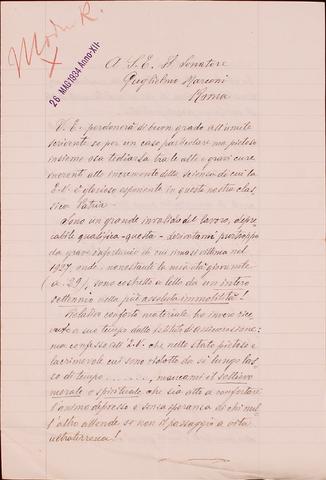 Mod. R.
X
26 MAG 1934 Anno XII
A S. E. Il Senatore
Guglielmo Marconi
Roma
V. E. perdonerà di buon grado all'umile
scrivente se per un caso particolare ma pietoso
insieme osa tediarla tra le alte e gravi cure
inerenti alle incremento della scienza di cui la
E. V. è glorioso esponente in questa nostra clas-
sica Patria.
Sono un grande invalido del lavoro, depre-
cabile qualifica - questa - derivatami purtroppo
da grave infortunio di cui rimasi vittima nel
1927, onde, nonostante la mia età giovanile
(a. 29), sono costretto a letto da un intero
settennio nella più assoluta immobilità!
Relativo conforto materiale ho invero rice-
vuto a suo tempo dallo Istituto di assicurazione:
ma confesso all'E. V. che nello stato pietoso e
lacrimevole cui sono ridotto da sì lungo las-
so di tempo ........, mancami il sollievo
morale o spirituale che sia atto a confortare
l'animo depresso e senza speranza di chi nul-
l'altro attende se non il passaggio a vita
ultraterrena!